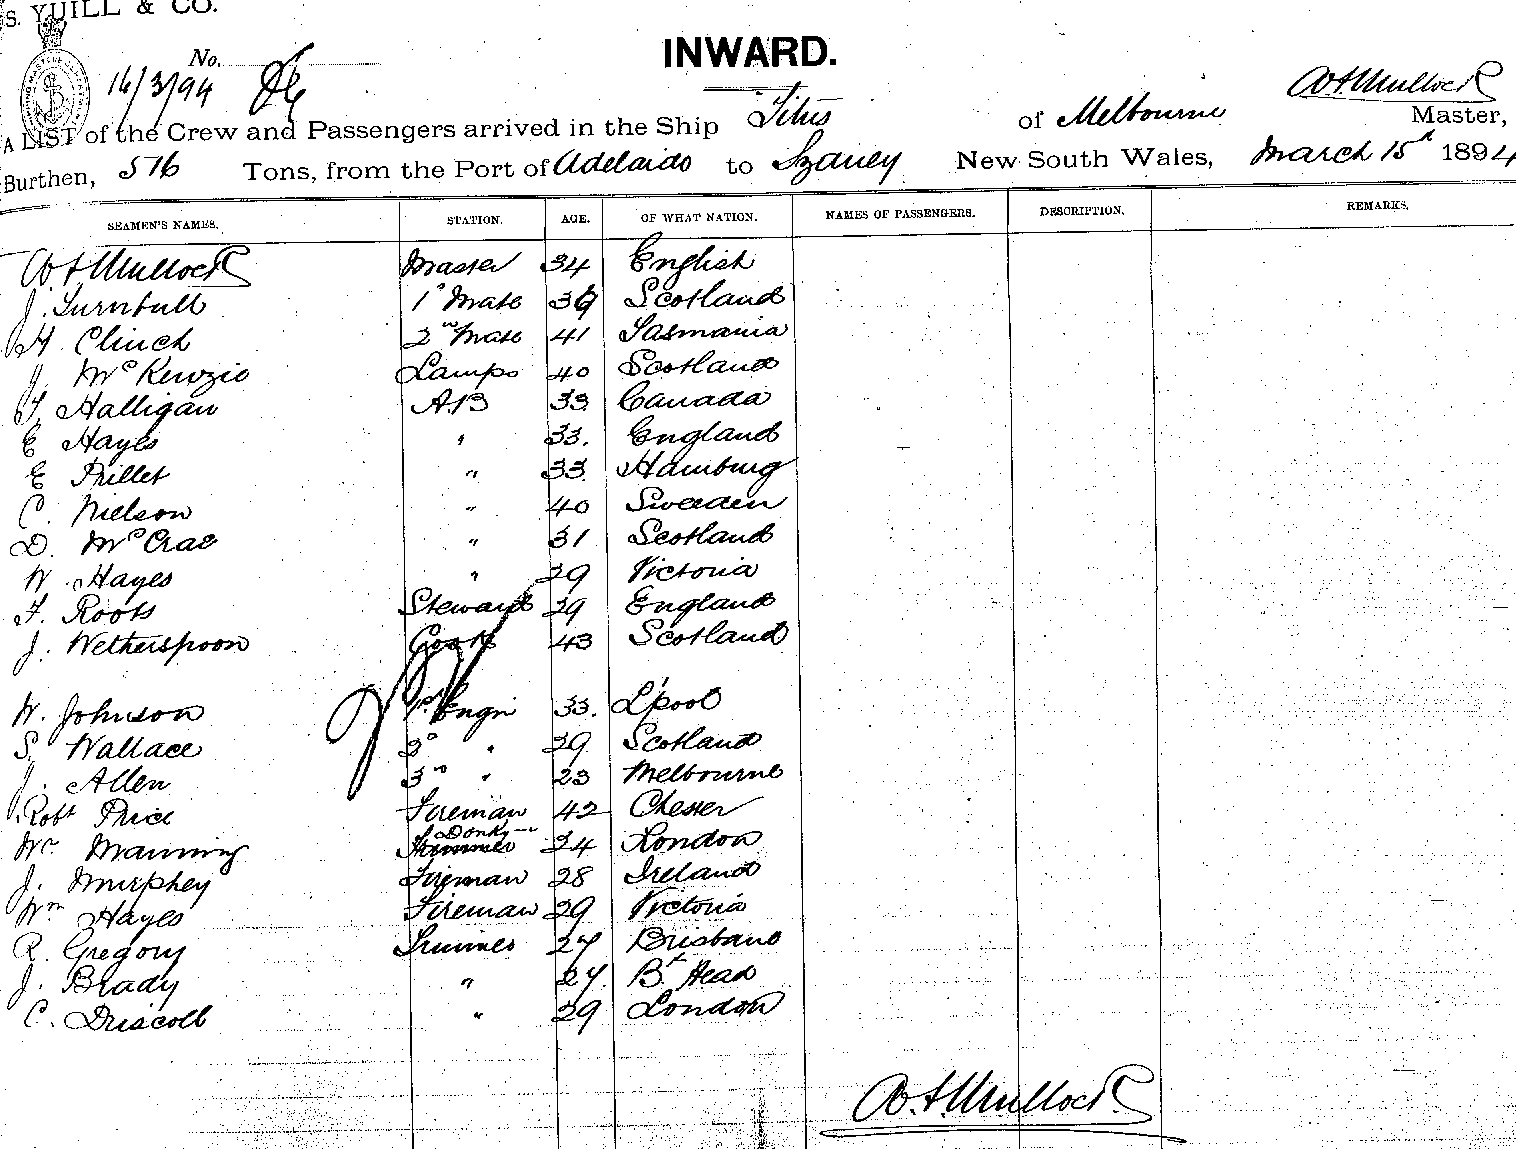 S. YUILL & CO.
No.
INWARD.
16/3/94
W H Mullock
A LIST of the Crew and Passengers arrived in the Ship Titus of Melbourne Master,
Burthen, 516 Tons, from the Port of Adelaide to Sydney New South Wales, March 15th 1894
SEAMEN'S NAMES. STATION. AGE. OF WHAT NATION. NAMES OF PASSENGERS. DESCRIPTION. REMARKS.
W H Mullock Master 34 English
J. Turnbull 1st Mate 39 Scotland
H Clinch 2nd Mate 41 Tasmania
J. McKenzie Lamps 40 Scotland
T. Halligan A.B 33 Canada
E Hayes " 33. England
E Prillet " 33 Hamburg
C. Nielson " 40 Sweden
D. McCrae " 31 Scotland
W. Hayes " 29 Victoria
F. Roots Steward 29 England
J. Wetherspoon Cook 43 Scotland
W. Johnson 1st Engn 33. L'pool
S. Wallace 2d " 29 Scotland
J. Allen 3rd " 23 Melbourne
Robt Price Fireman 42 Chester
Manning Donky 24 London
J. Murphey Fireman 28 Ireland
Wm Hayes Fireman 29 Victoria
R. Gregory Trimmer 27 Brisbane
J. Brady " 27. Bt Head
C. Driscoll " 29 London
W. H. Mullock